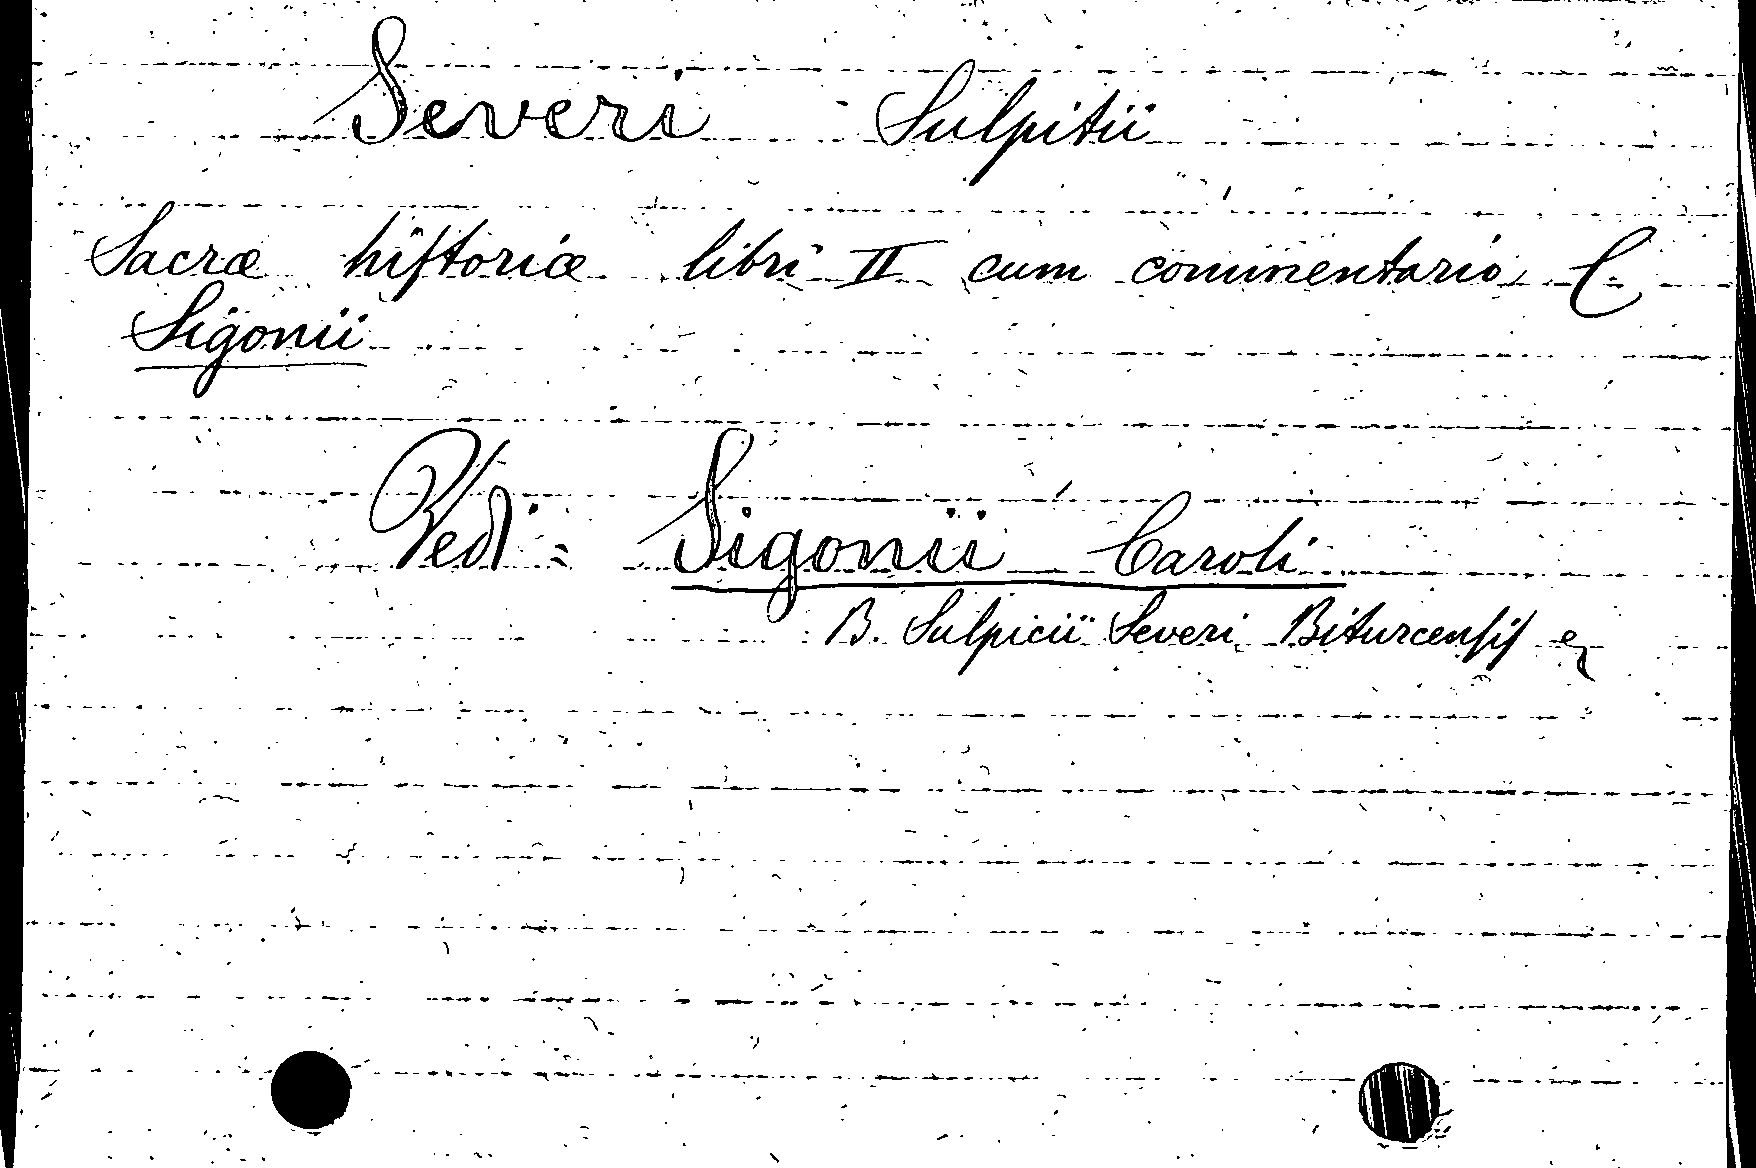 Severi Sulpitii
Sacræ historiæ libri II cum commentario C.
Sigonii
Vedi: Sigonii Caroli
B. Sulpicii Severi Biturcensis